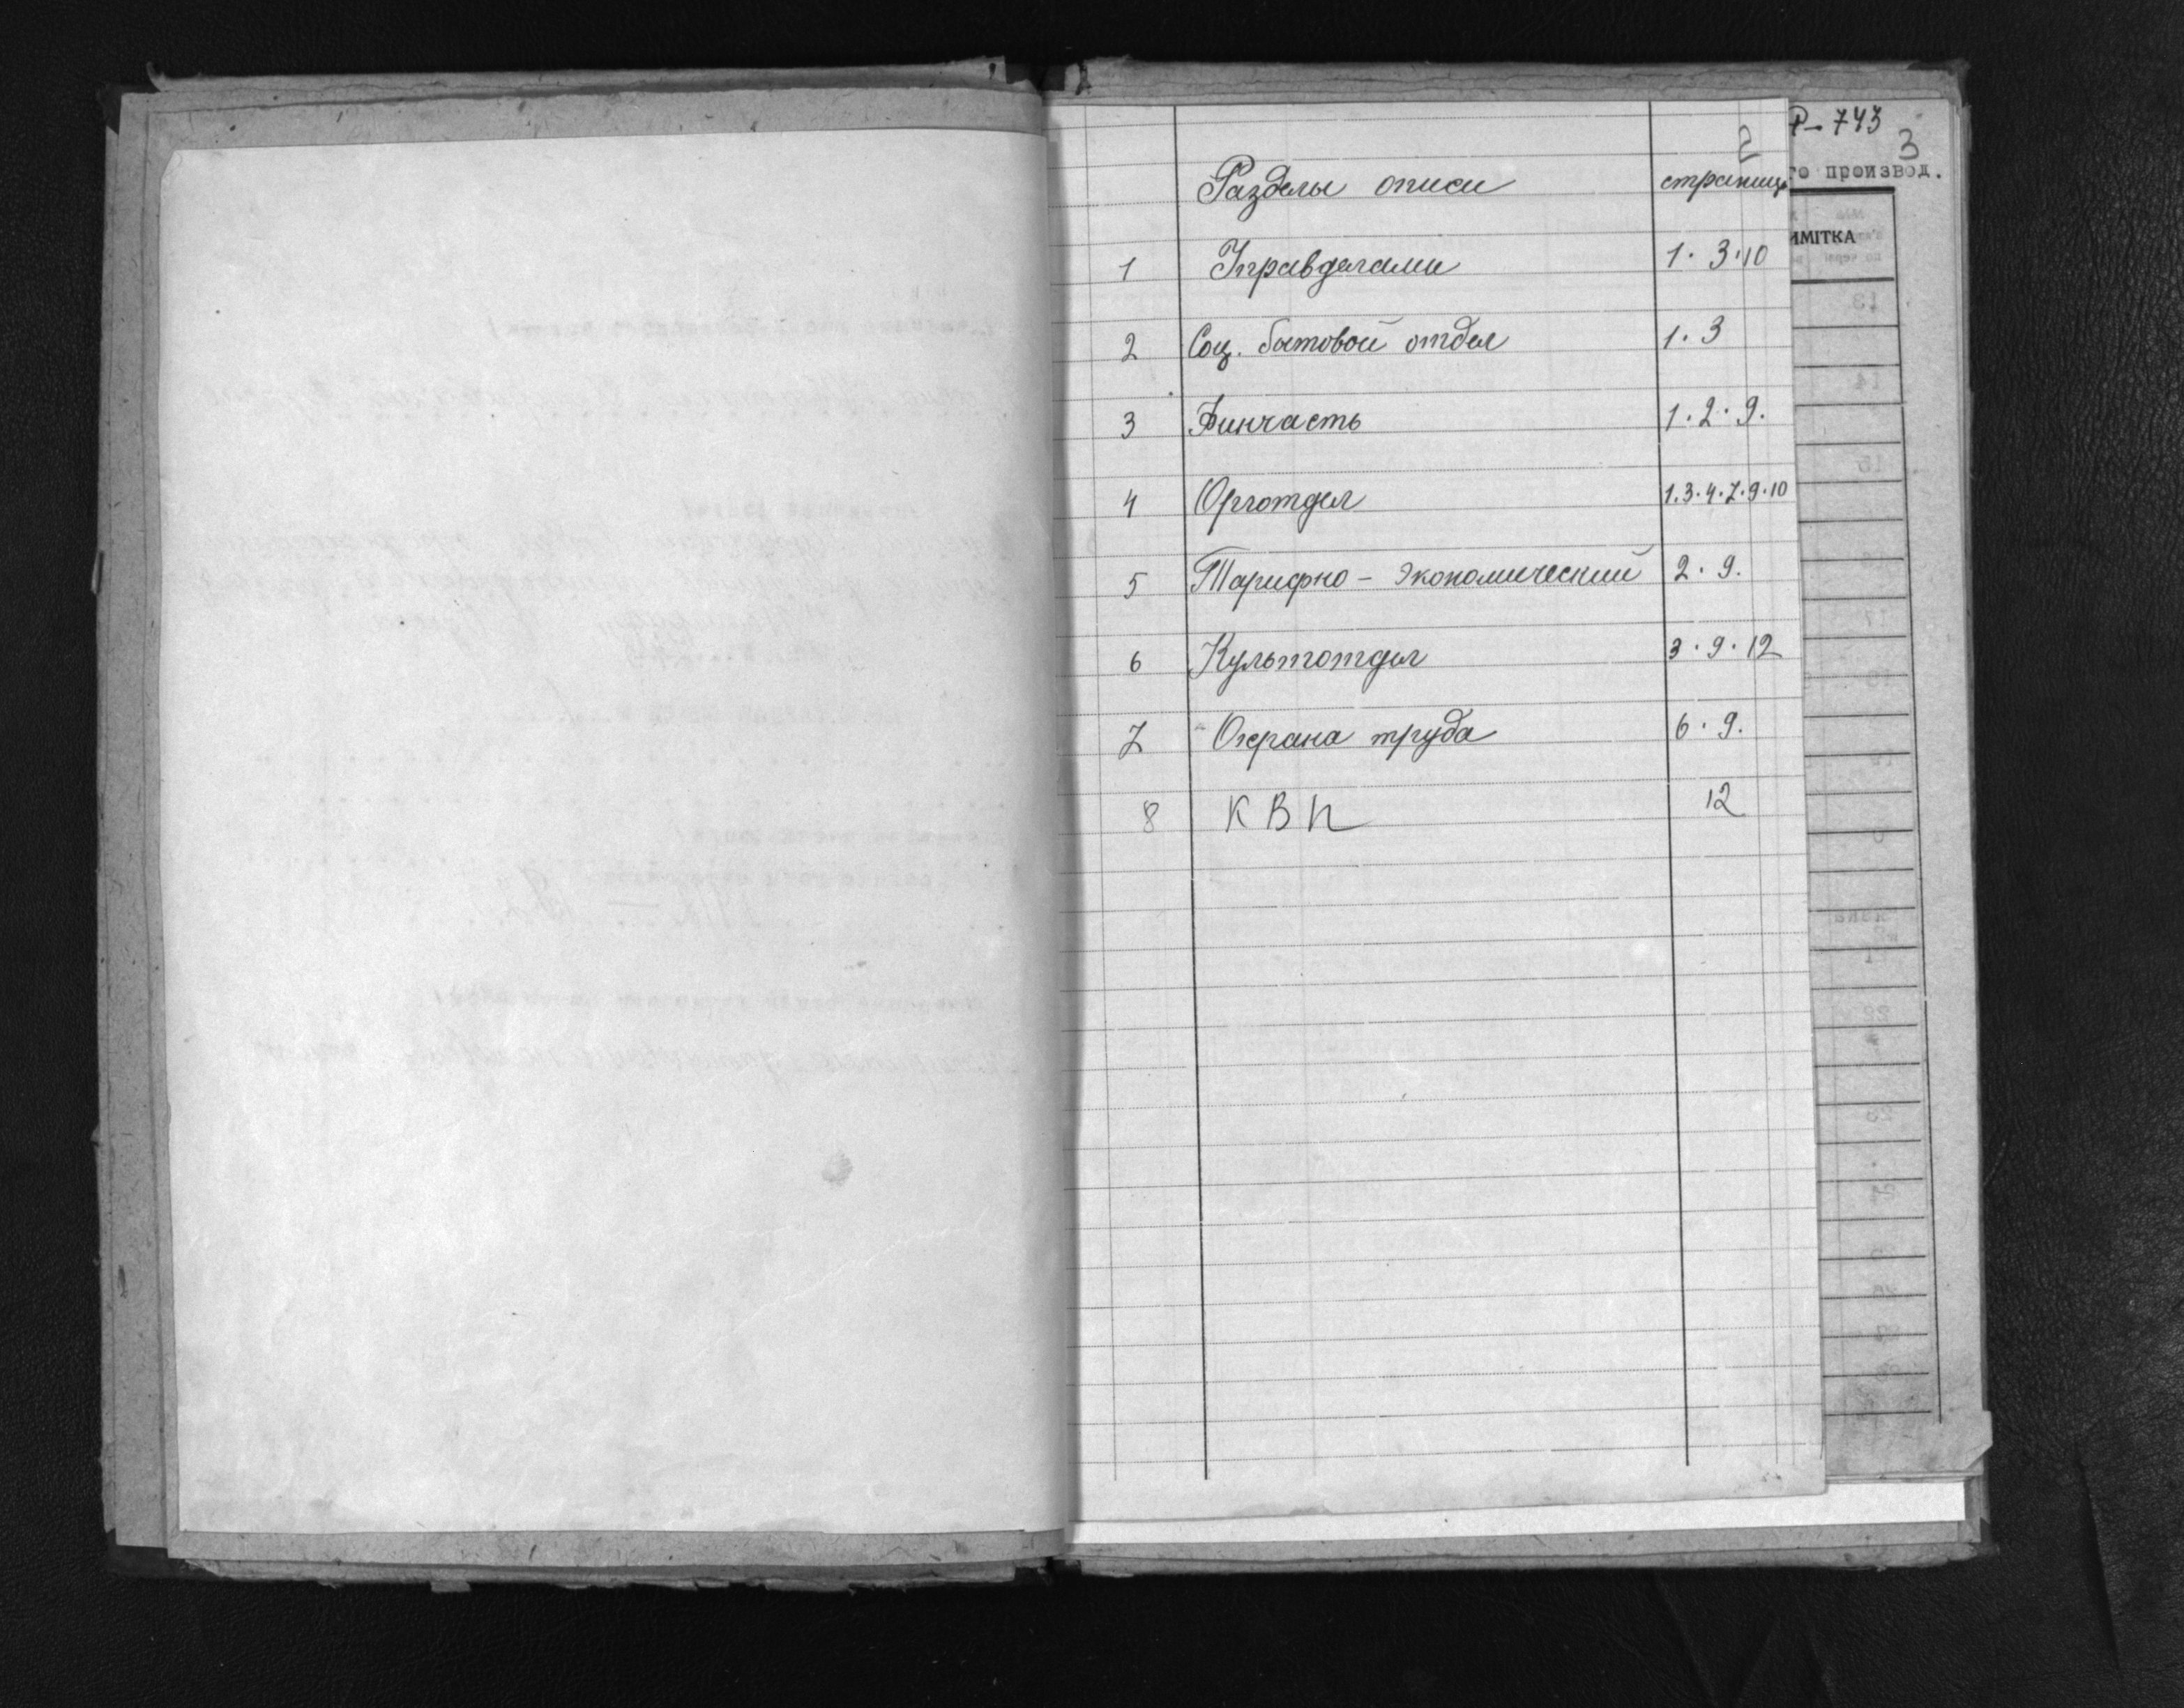 Р-743
2 3
го производ.
Разделы описи страниц
ИМІТКА
1 Управделами 1. 3. 10
2 Соц. бытовой отдел 1. 3
3 Финчасть 1. 2. 9.
4 Орготдел 1. 3. 4. 7. 9. 10
5 Тарифно - экономический 2. 9.
6 Культотдел 3. 9. 12
7 Охрана труда 6. 9.
8 КВП 12